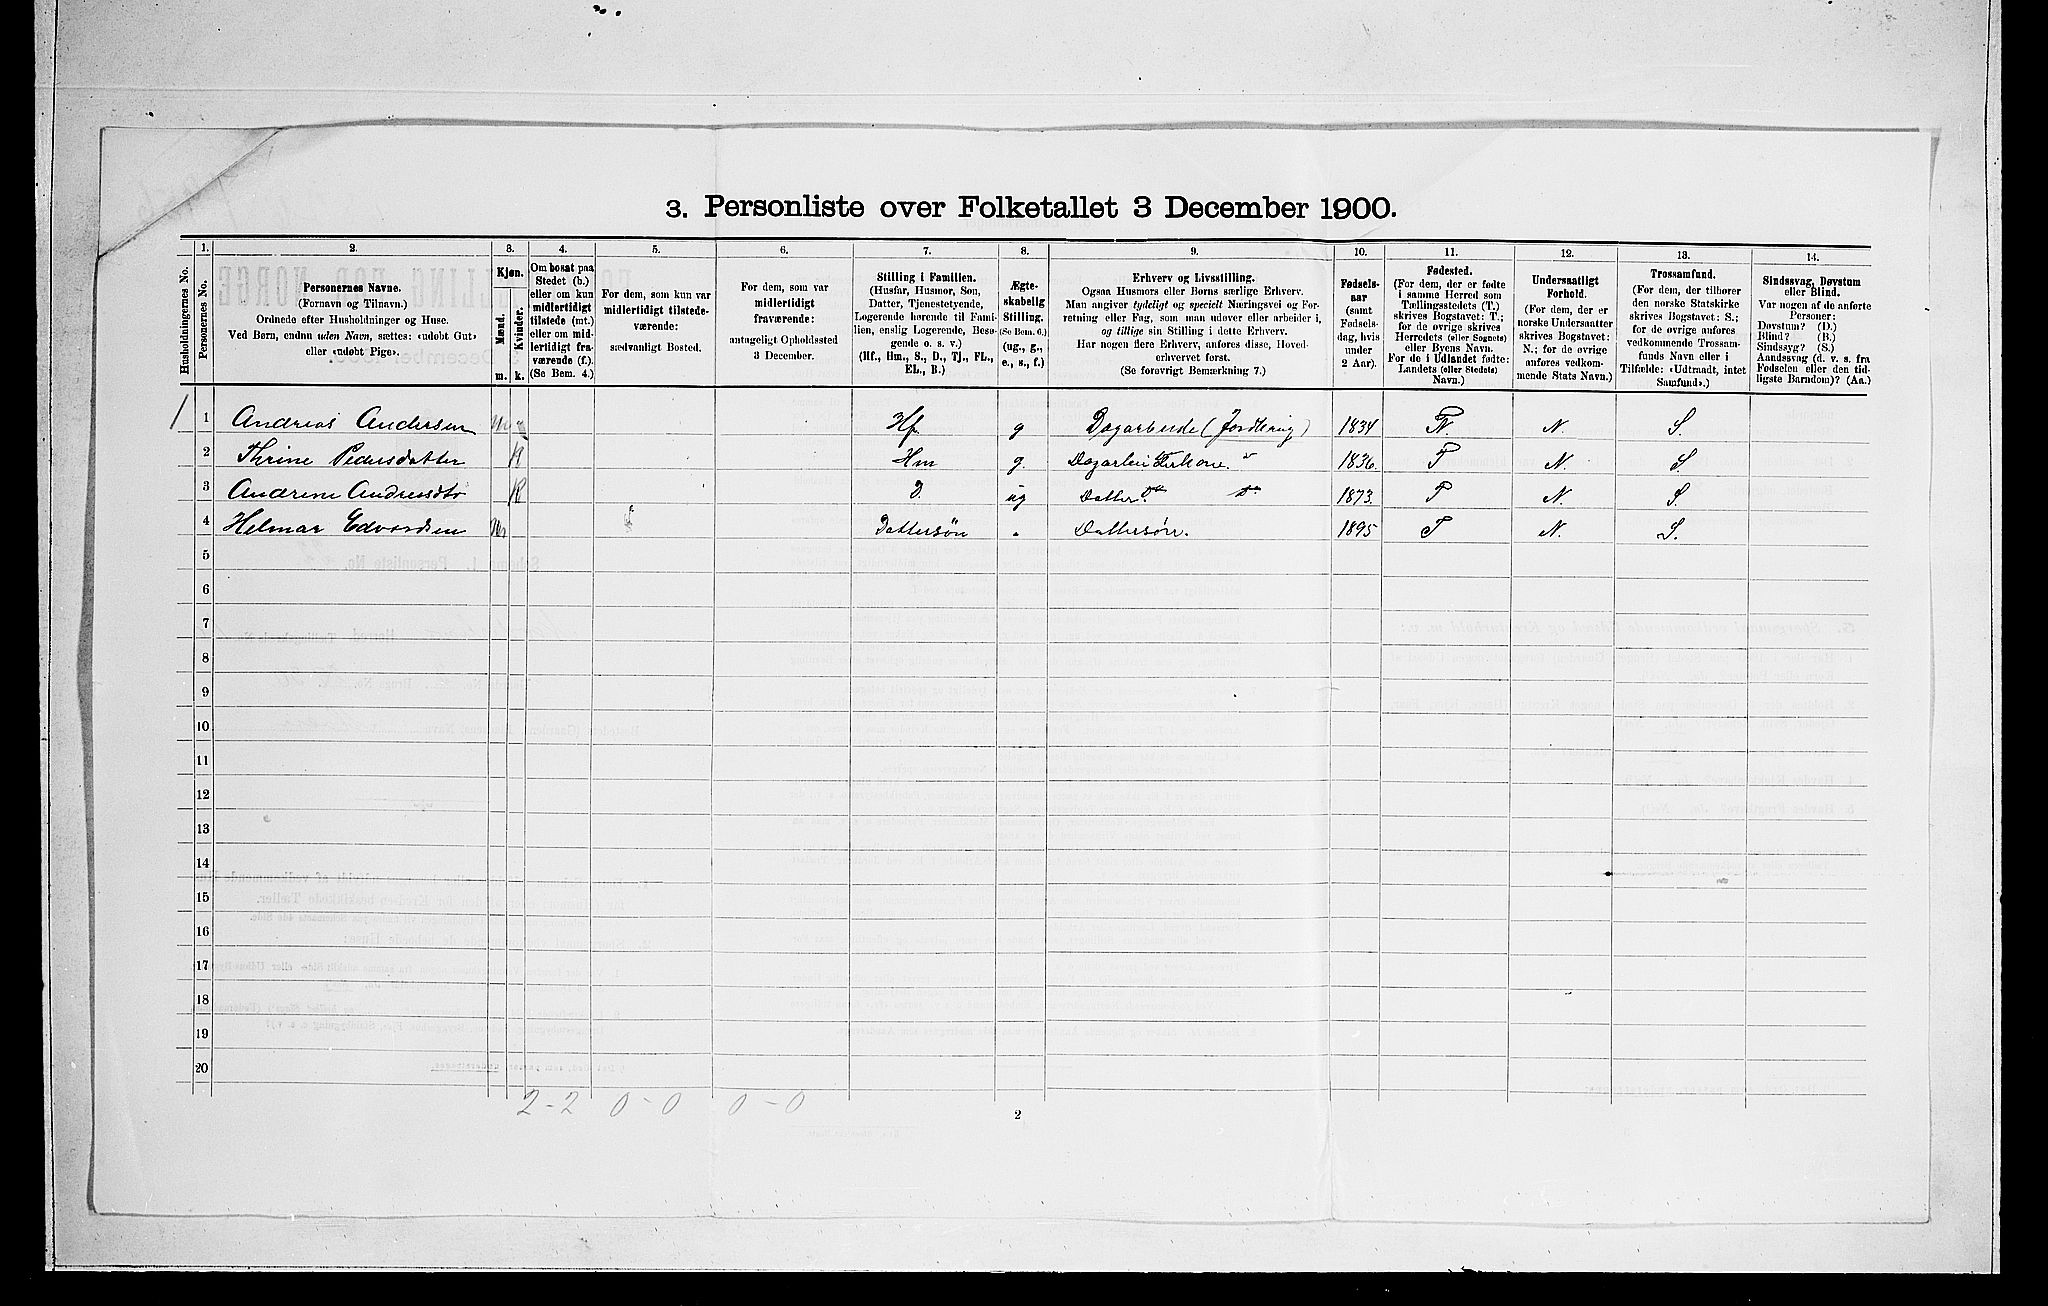 3. Personliste over Folketallet 3 December 1900.
1. 2. 3. 4. 5. 6. 7. 8. 9. 10. 11. 12. 13. 14.
Husholdningernes No.
Personernes No.
Personernes Navne.
(Fornavn og Tilnavn.)
Ordnede efter Husholdninger og Huse.
Ved Børn, endnu uden Navn, sættes: «udøbt Gut»
eller «udøbt Pige».
Kjøn.
Mænd.
Kvinder.
m. k.
Om bosat paa
Stedet (b.)
eller om kun
midlertidigt
tilstede (mt.)
eller om mid-
lertidigt fra-
værende (f.)
(Se Bem. 4.)
For dem, som kun var
midlertidigt tilstede-
værende:
sædvanligt Bosted.
For dem, som var
midlertidigt
fraværende:
antageligt Opholdssted
3 December.
Stilling i Familien.
(Husfar, Husmor, Søn,
Datter, Tjenestetyende,
Logerende hørende til Fami-
lien, enslig Logerende, Besø-
gende o. s. v.)
(Hf., Hm., S., D., Tj., FL.,
EL., B.)
Ægte-
skabelig
Stilling.
(Se Bem. 6.)
(ug., g.,
e., s., f.)
Erhverv og Livsstilling.
Ogsaa Husmors eller Børns særlige Erhverv.
Man angiver tydeligt og specielt Næringsvei og For-
retning eller Fag, som man udøver eller arbeider i,
og tillige sin Stilling i dette Erhverv.
Har nogen flere Erhverv, anføres disse, Hoved-
erhvervet først.
(Se forøvrigt Bemærkning 7.)
Fødsels-
aar
(samt
Fødsels-
dag, hvis
under
2 Aar).
Fødested.
(For dem, der er fødte
i samme Herred som
Tællingsstedets (T.)
skrives Bogstavet: T.;
for de øvrige skrives
Herredets (eller Sognets)
eller Byens Navn.
For de i Udlandet fødte:
Landets (eller Stedets)
Navn.)
Undersaatligt
Forhold.
(For dem, der er
norske Undersaatter
skrives Bogstavet:
N.; for de øvrige
anføres vedkom-
mende Stats Navn.)
Trossamfund.
(For dem, der tilhører
den norske Statskirke
skrives Bogstavet: S.;
for de øvrige anføres
vedkommende Trossam-
funds Navn eller i
Tilfælde: «Udtraadt, intet
Samfund».)
Sindssvag, Døvstum
eller Blind.
Var nogen af de anførte
Personer:
Døvstum? (D.)
Blind? (B.)
Sindssyg? (S.)
Aandssvag (d. v. s. fra
Fødselen eller den tid-
ligste Barndom)? (Aa.)
1 1 Andreas Andersen m Hf g Dagarbeide (Jordbrug) 1834 N. S.
2 Thrine Pedersdatter K Hm g. 1836. T N. S.
3 K D. ug Datter 1873. T N. S.
4 Helmar Edvardsen m Dattersøn Dattersøn. 1895 T N. S.
5
6
7
8
9
10
11
12
13
14
15
16
17
18
19
20
2 - 2 0 - 0 0 - 0
2